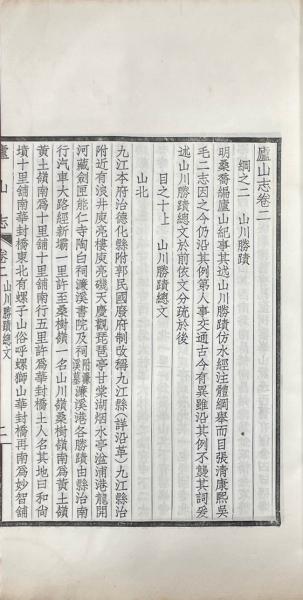 廬山志卷二
綱之二　山川勝蹟
明桑喬編廬山紀事其述山川勝蹟仿水經注體綱舉而目張清康熙吳
毛二志因之今仍沿其例第人事交通古今有異雖沿其例不襲其詞爰
述山川勝蹟總文於前依文分疏於後
目之十上　山川勝蹟總文
山北
九江本府治德化縣附郭民國廢府制改稱九江縣（詳沿革）九江縣治
附近有浪井庾亮樓庾亮磯天慶觀琵琶亭甘棠湖烟水亭湓浦港龍開
河藏劍匣能仁寺陶白祠濂溪書院及祠附濂溪墓濂溪港各勝蹟由縣治南
行汽車大路經新壩一里許至桑樹嶺一名山川嶺桑樹嶺南爲黃土嶺
黃土嶺南爲十里舖十里舖南行五里許爲華封橋土人名其地曰和尚
墳十里舖華封橋東北有螺子山俗呼螺獅山華封橋再南爲妙智舖
廬山志　卷二　山川勝蹟總文　一